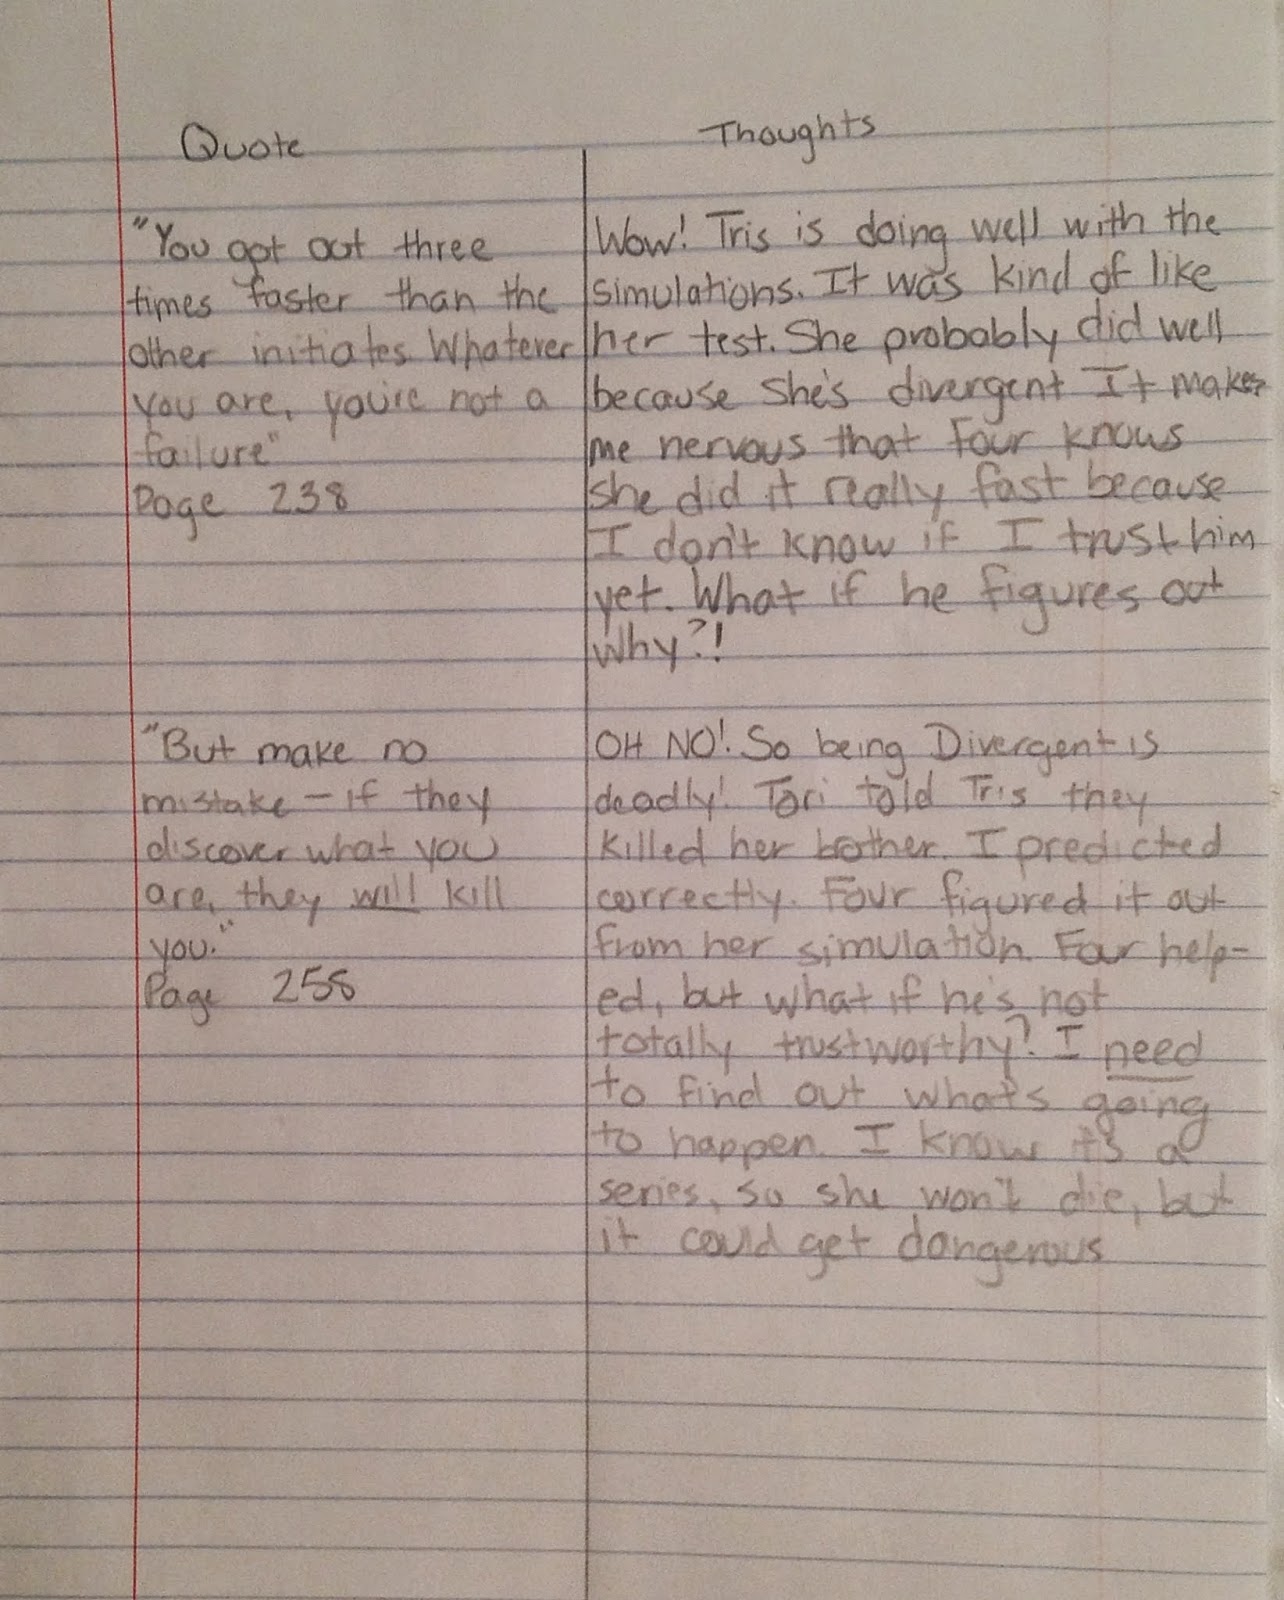 Quote
Thoughts
"You got out three
times faster than the
other initiates. Whatever
you are, you're not a
failure"
Page 238
Wow! Tris is doing well with the
simulations. It was kind of like
her test. She probably did well
because she's divergent It makes
me nervous that Four knows
she did it really fast because
I don't know if I trust him
yet. What if he figures out
why?!
"But make no
mistake - if they
discover what you
are, they will kill
you."
Page 258
OH NO! So being Divergent is
deadly! Tori told Tris they
killed her brother. I predicted
correctly. Four figured it out
from her simulation. Four help-
ed, but what if he's not
totally trustworthy? I need
to find out what's going
to happen. I know it's a
series, so she won't die, but
it could get dangerous